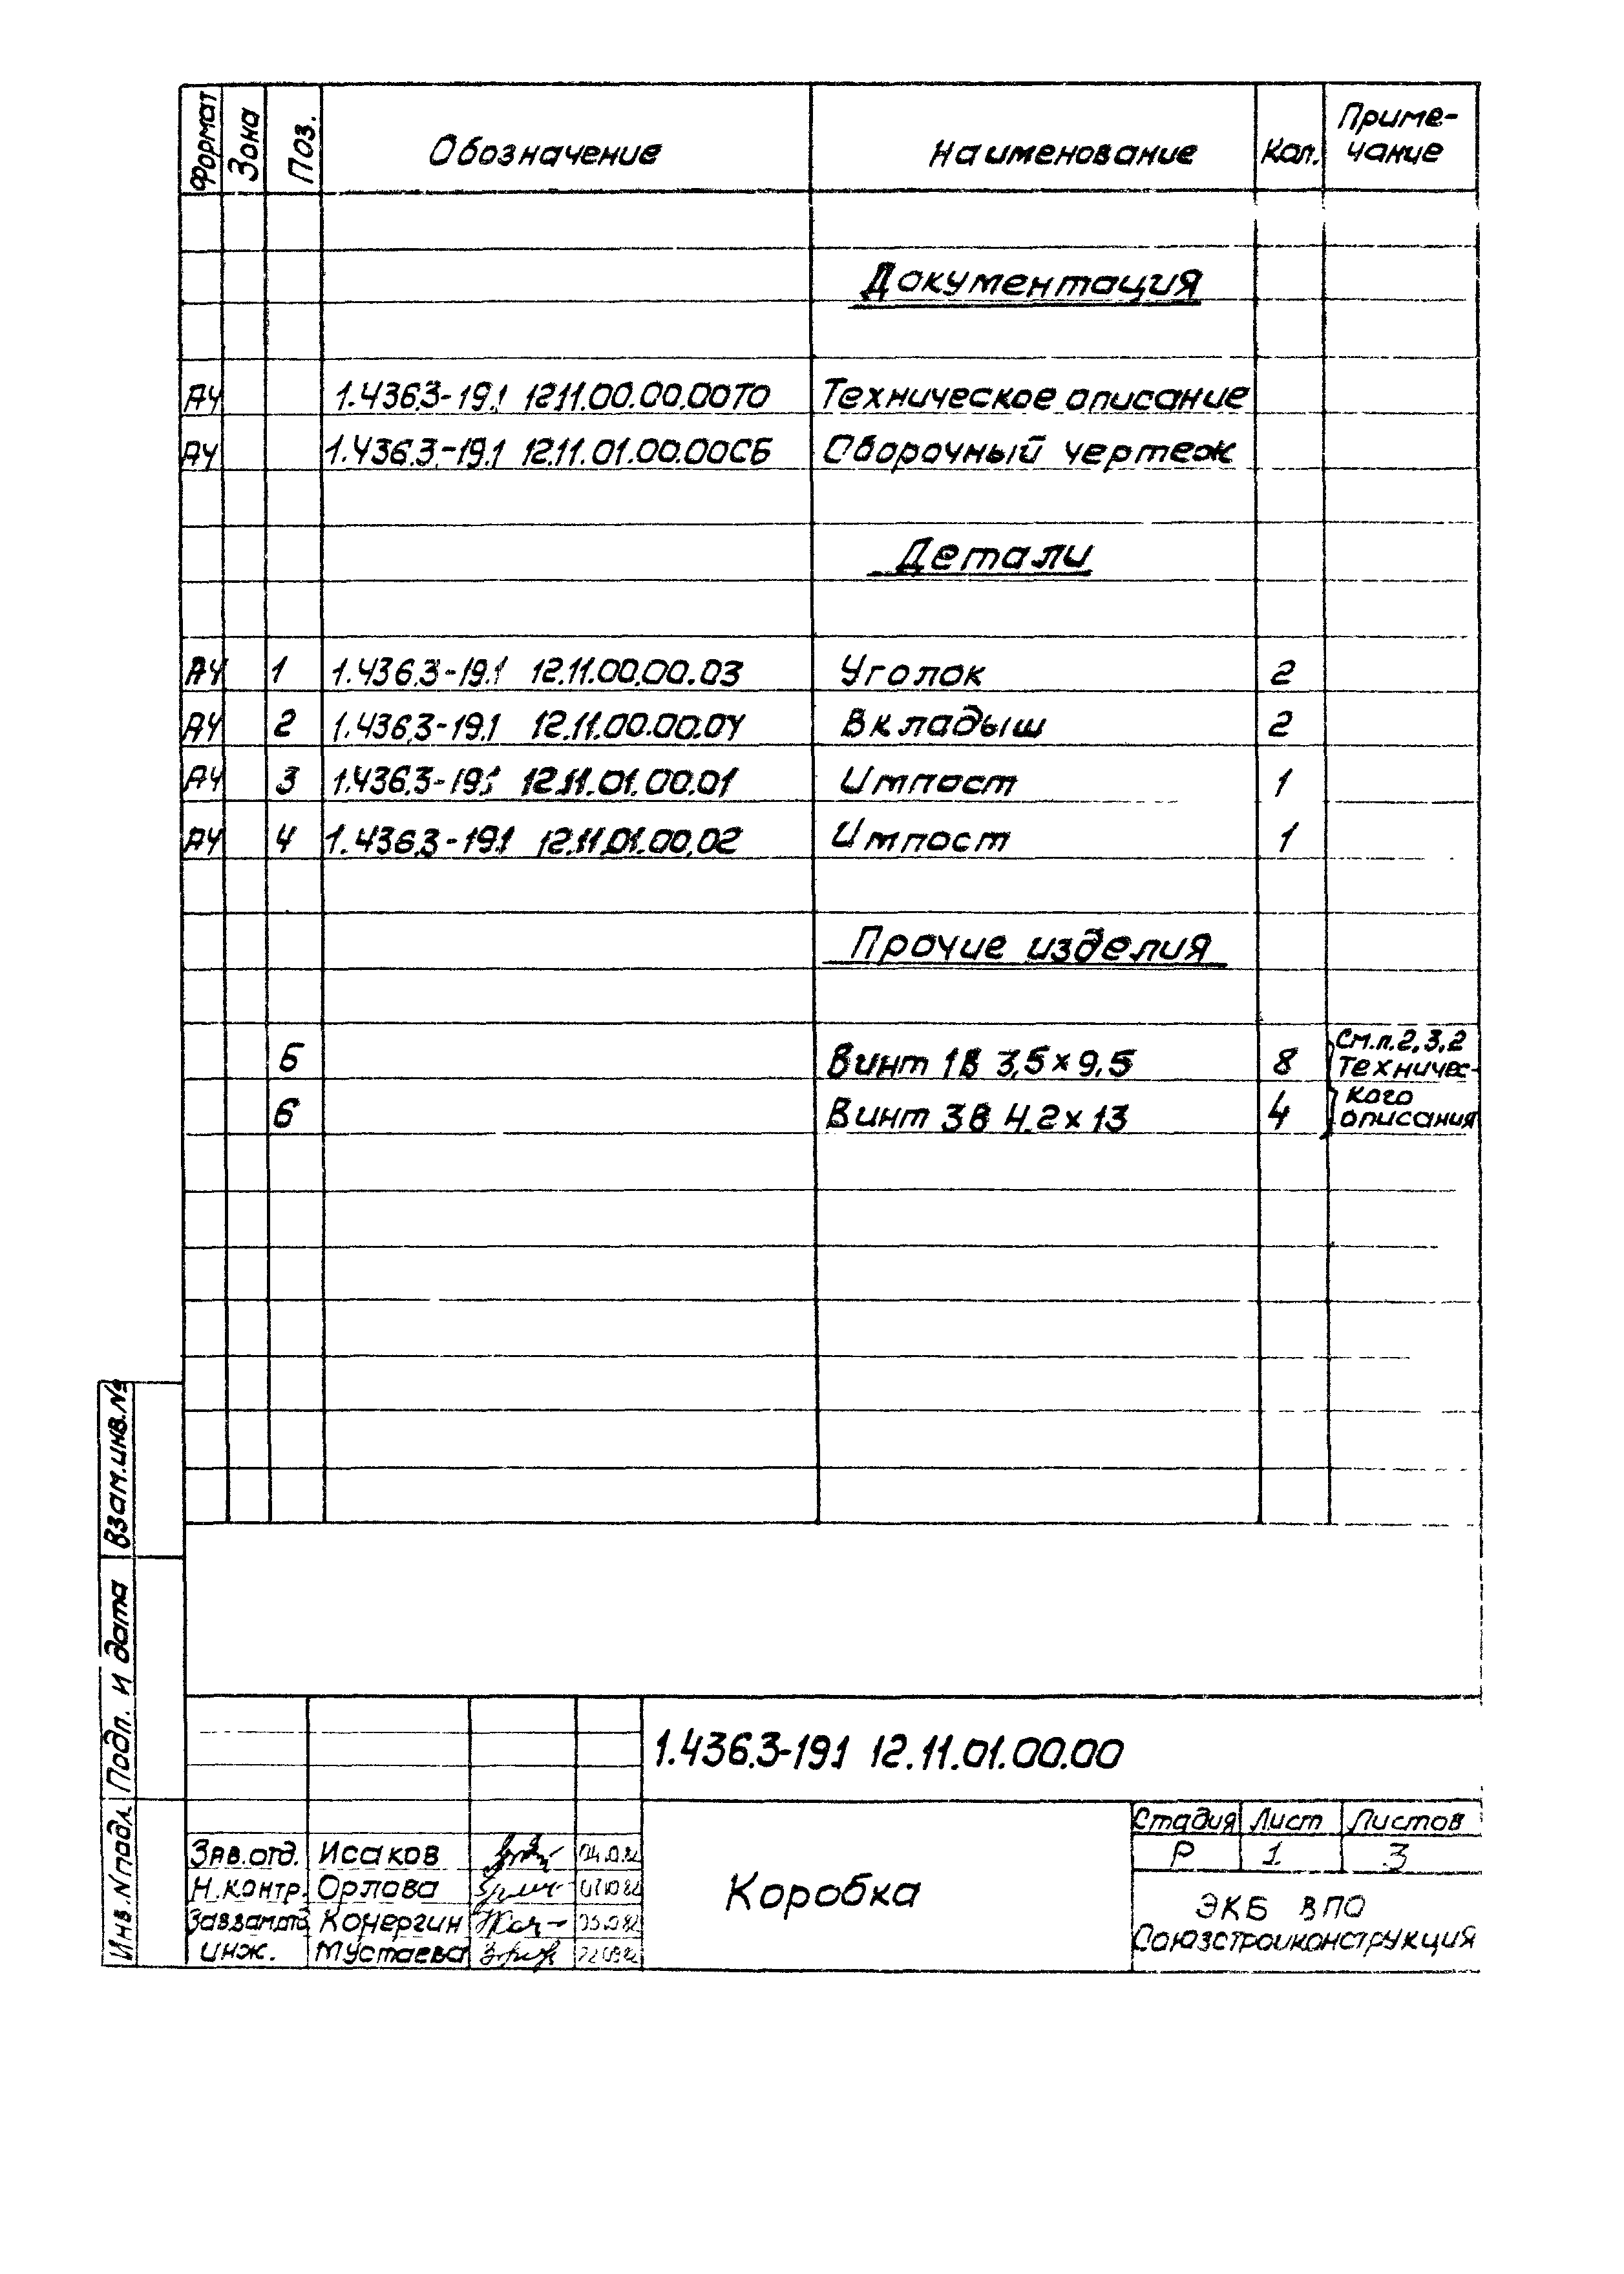 Формат Зона Поз. Обозначение Наименование Кол. Приме-
чание
Документация
А4 1.436.3-19.1 12.11.00.00.00ТО Техническое описание
А4 1.436.3-19.1 12.11.01.00.00СБ Сборочный чертеж
Детали
А4 1 1.436.3-19.1 12.11.00.00.03 Уголок 2
А4 2 1.436.3-19.1 12.11.00.00.04 Вкладыш 2
А4 3 1.436.3-19.1 12.11.01.00.01 Импост 1
А4 4 1.436.3-19.1 12.11.01.00.02 Импост 1
Прочие изделия
5 Винт 1В 3,5×9,5 8 См.п.2,3,2
Техничес-
6 Винт 3В 4.2×13 4 кого
описания
Взам.инв.№
Подп. и дата
Инв.Nподл.
1.436.3-19.1 12.11.01.00.00
Стадия Лист Листов
Р 1 3
Коробка
ЭКБ ВПО
Союзстройконструкция
Зав.отд. Исаков
Н.контр. Орлова
Конергин
инж. Мустаева